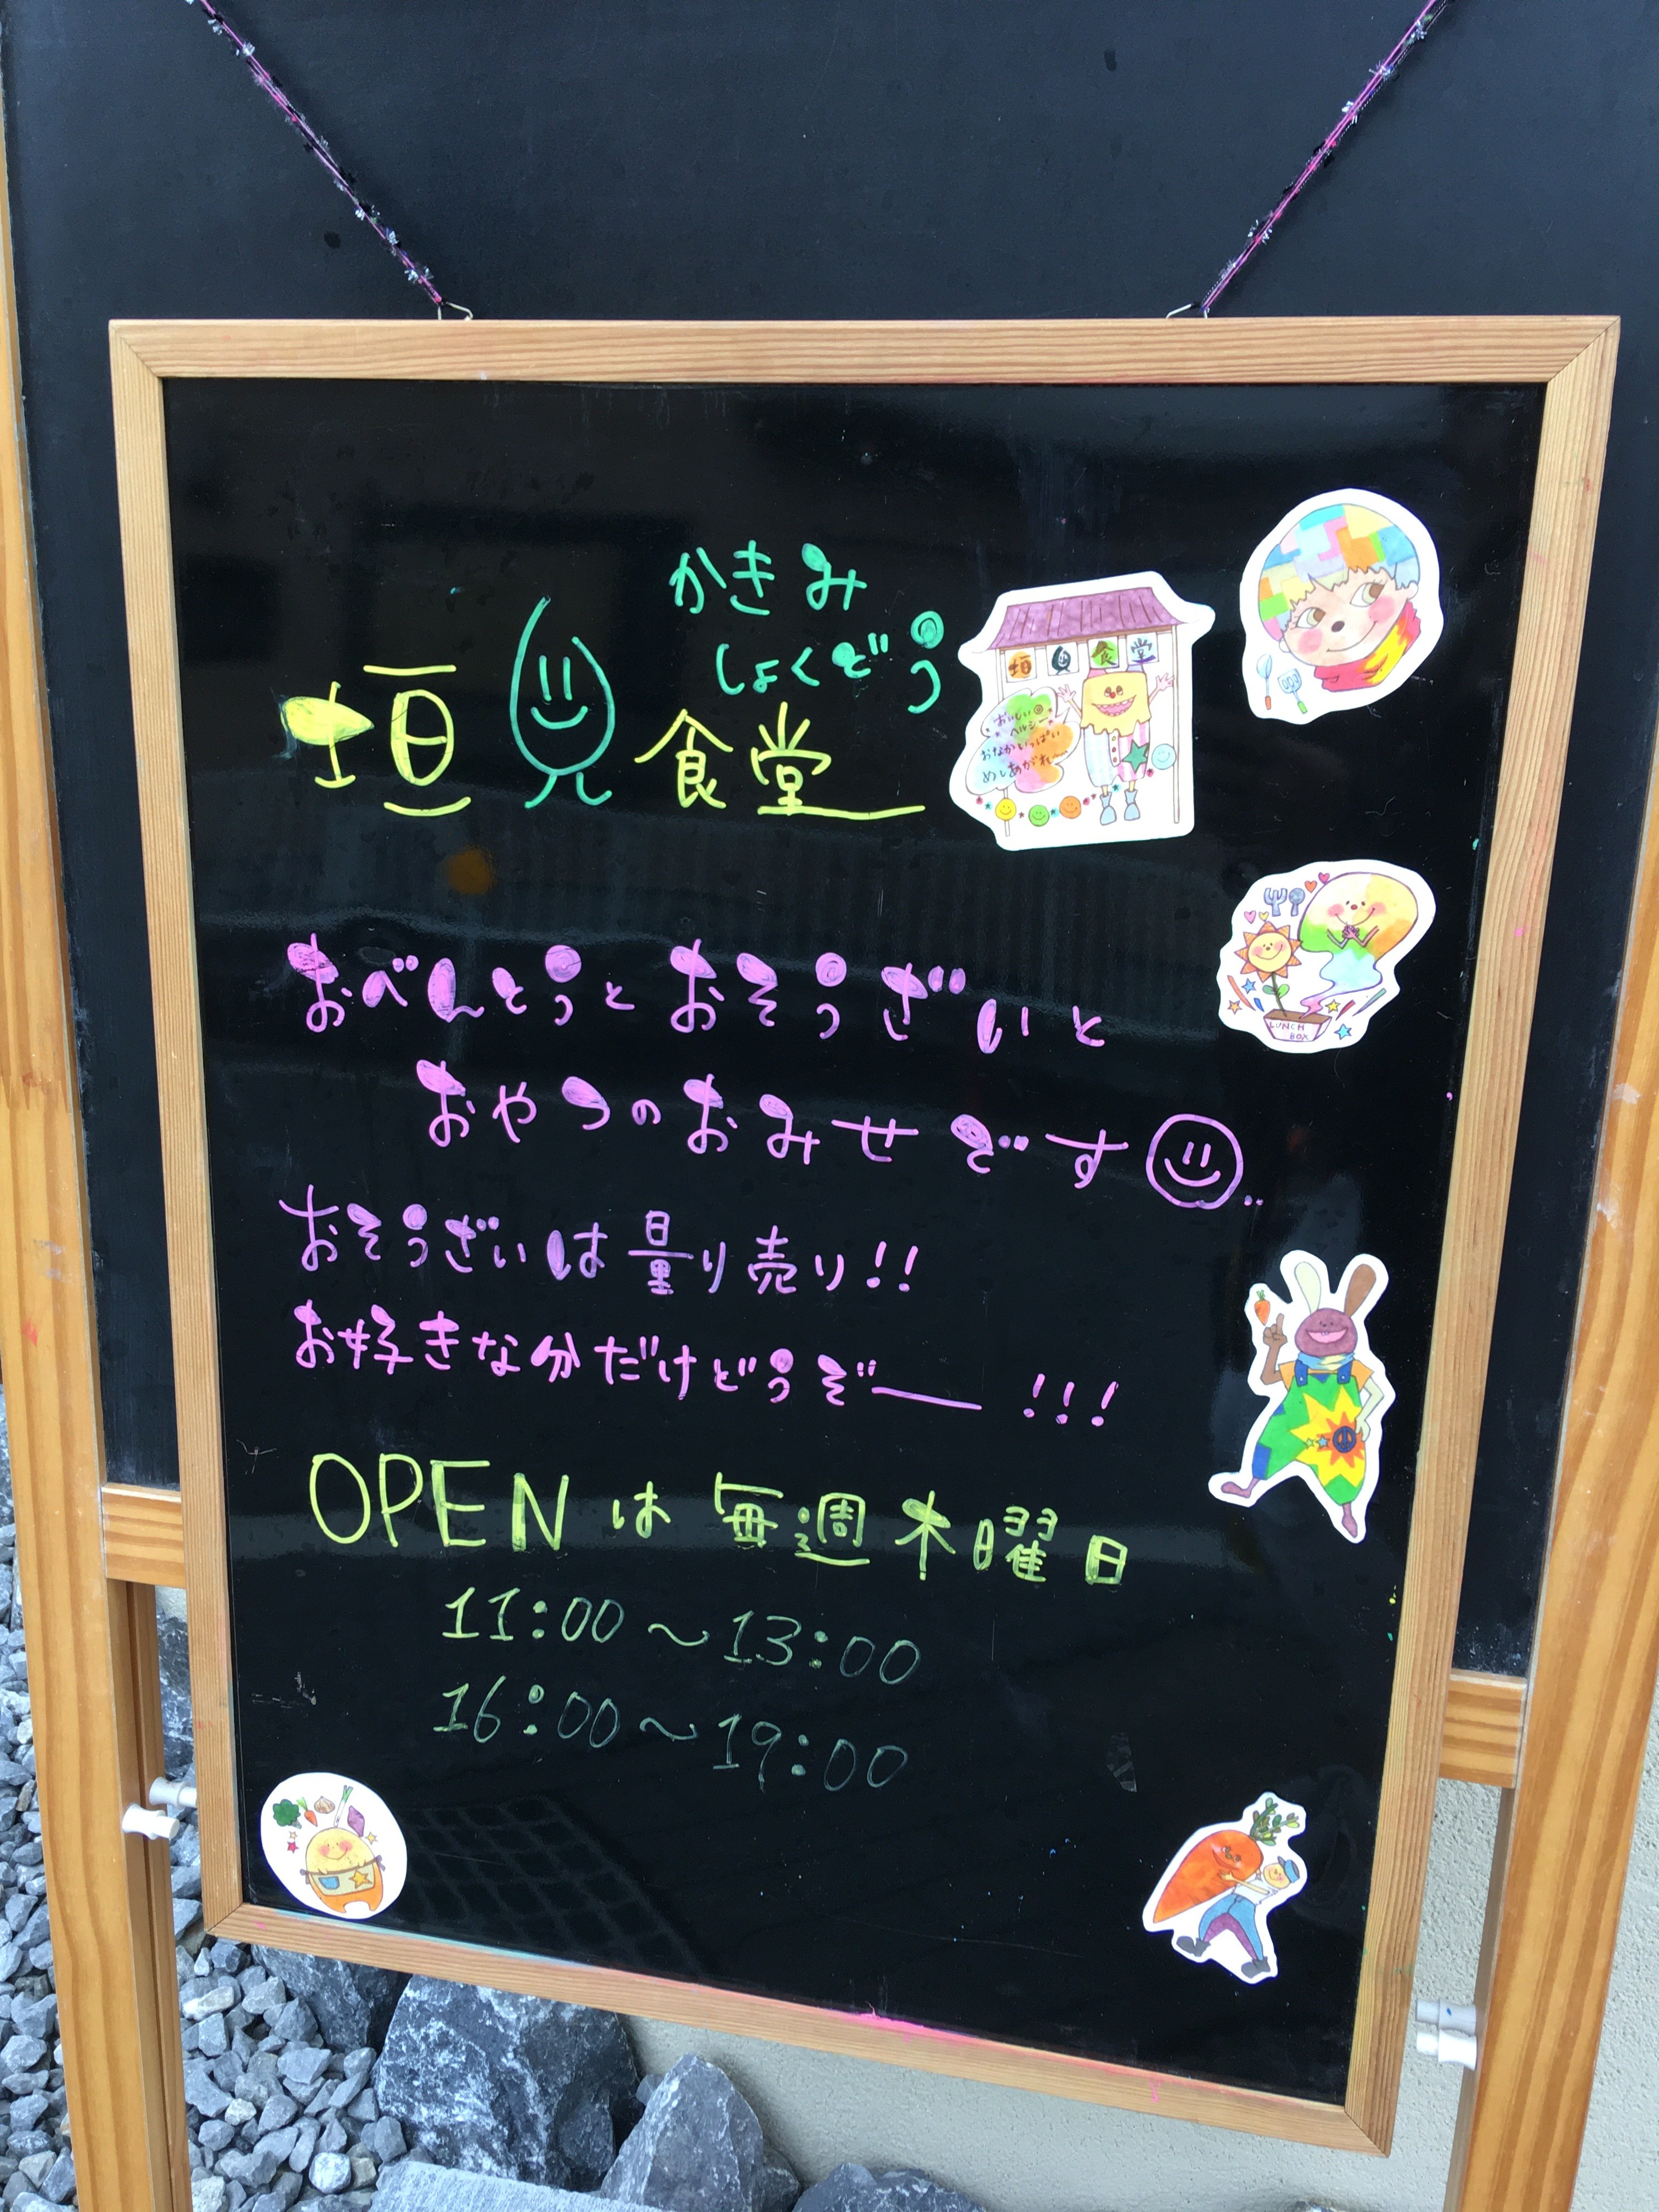 かきみ
しょくどう
垣見食堂
垣見食堂
おいしい
ヘルシー
おなかいっぱい
めしあがれ
おべんとうとおそうざいと
おやつのおみせです
LUNCH
BOX
おそうざいは量り売り!!
お好きな分だけどうぞー!!!
OPENは毎週木曜日
11:00〜13:00
16:00〜19:00